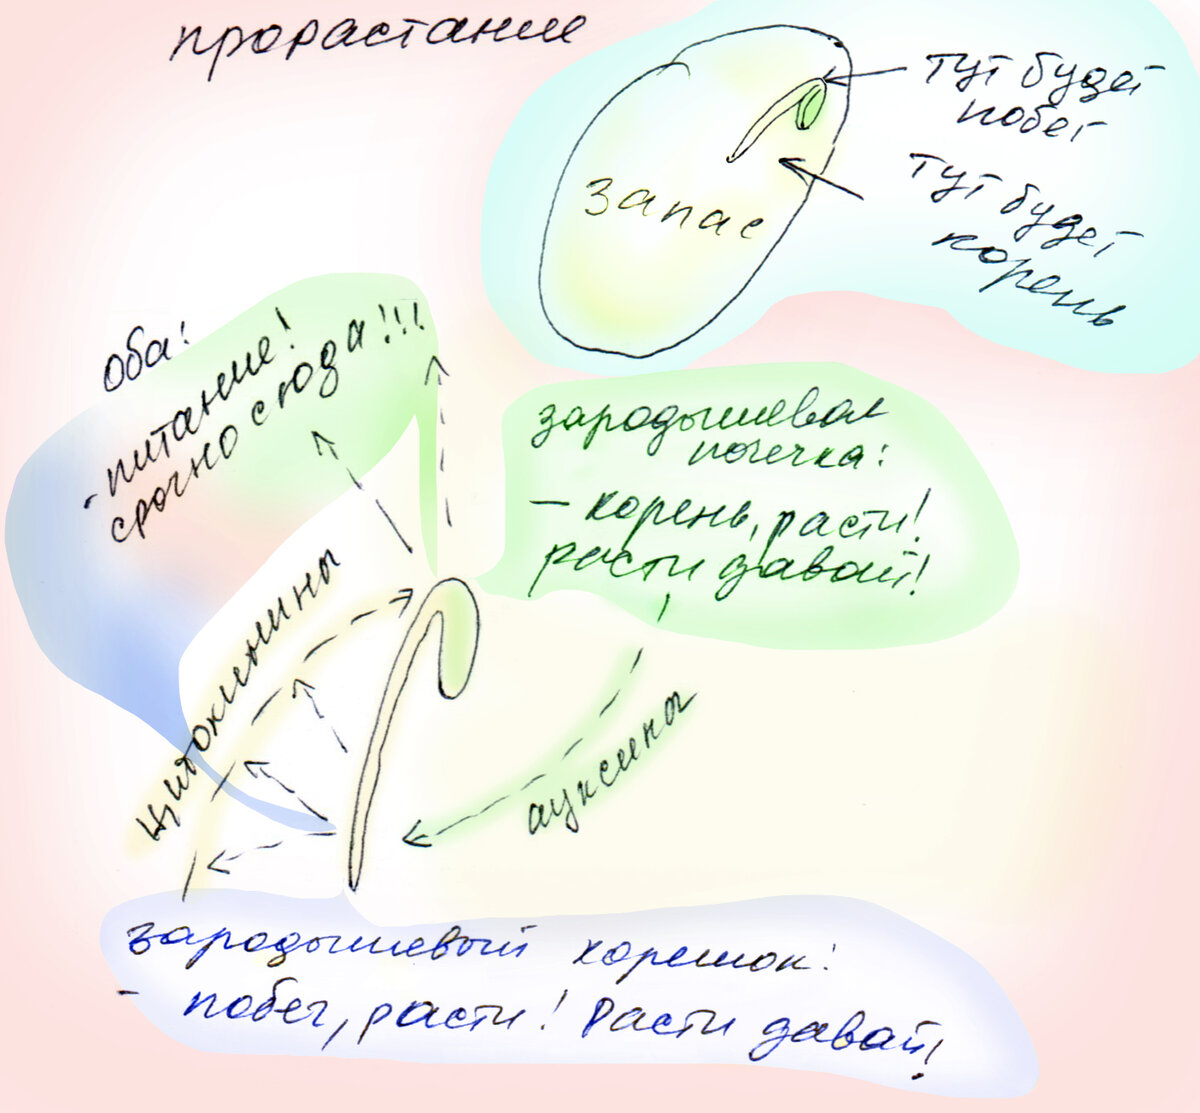 прорастание
тут будет
побег
тут будет
корень
запас
оба:
- питание!
срочно сюда!!!
зародышевая
почечка:
- корень, расти!
расти давай!
цитокинины
ауксины
зародышевый корешок:
- побег, расти! Расти давай!